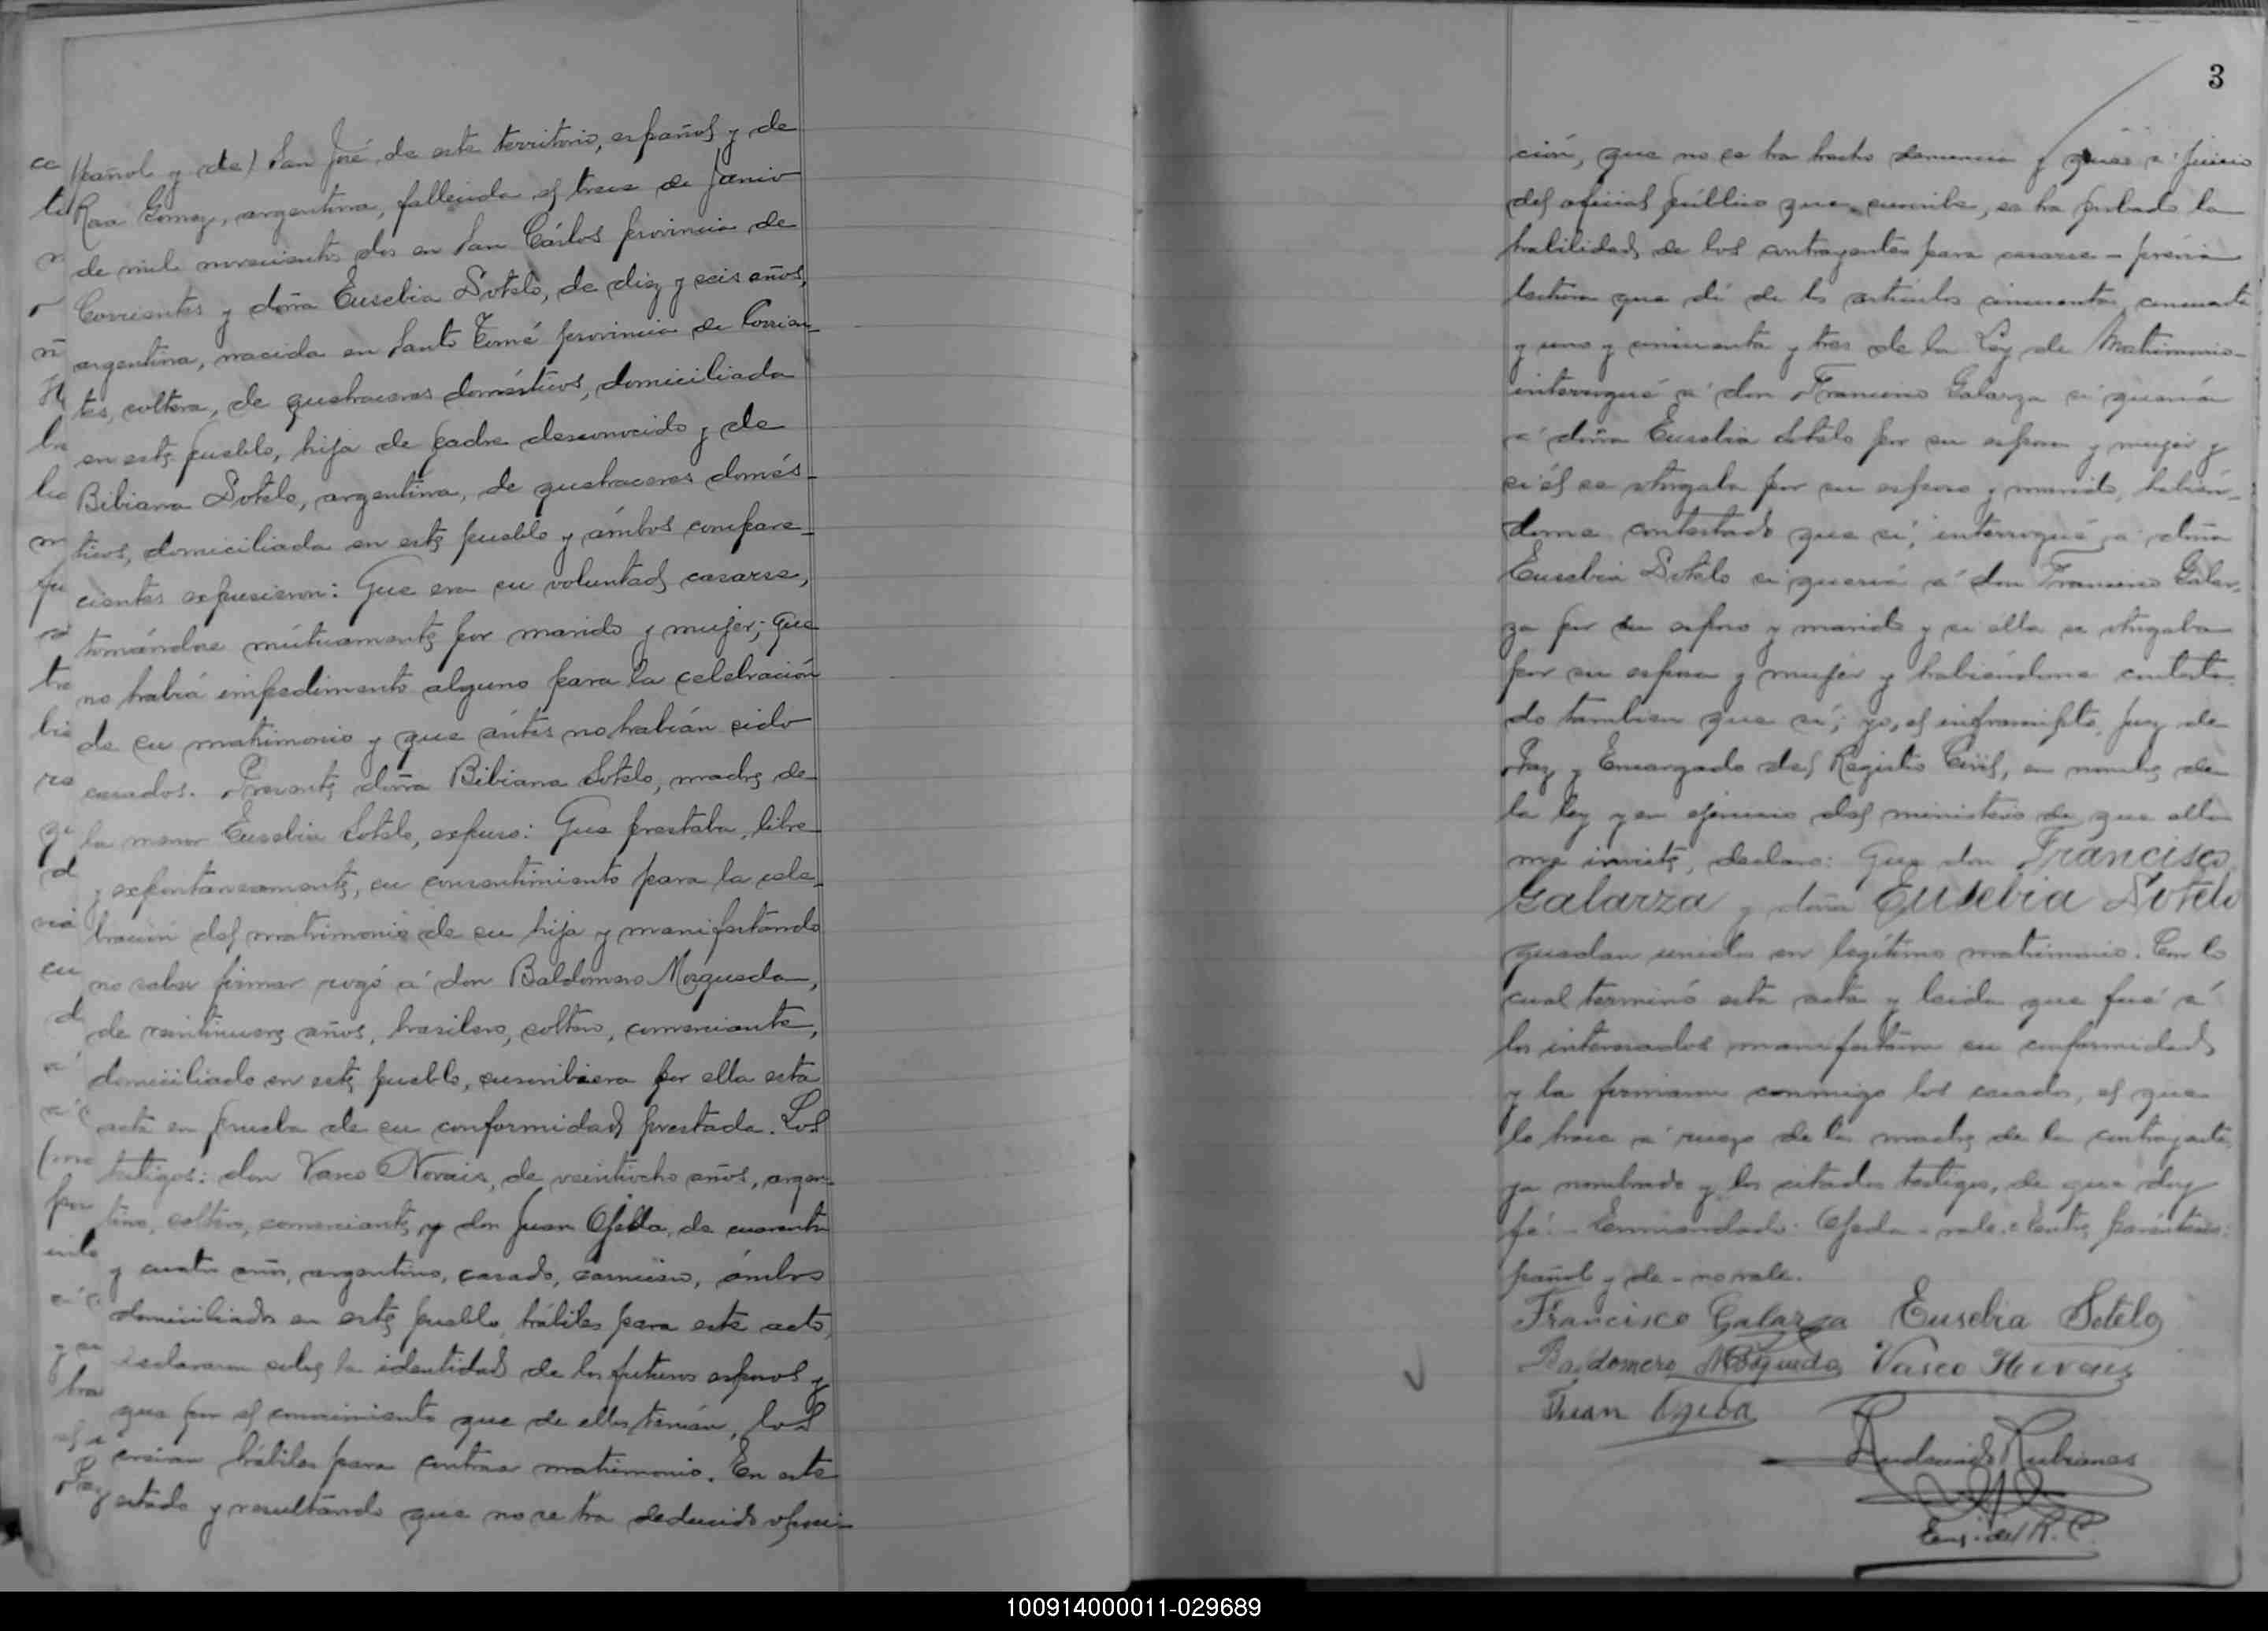 pañol y de) San José, de este territorio, español y de
Rosa Gomez, argentina, fallecida el trece de Junio
de mil novecientos dos en San Cárlos provincia de
Corrientes y doña Eusebia Sotelo, de diez y seis años,
argentina, nacida en Santo Tomé provincia de Corrien-
tes, soltera, de quehaceres domésticos, domiciliada
en este pueblo, hija de padre desconocido y de
Bibiana Sotelo, argentina, de quehaceres domés-
ticos, domiciliada en este pueblo y ámbos compare-
cientes expusieron: Que era su voluntad casarse,
tomándose mútuamente por marido y mujer; que
no habiá impedimento alguno para la celebración
de su matrimonio y que ántes no habián sido
casados. Presente doña Bibiana Sotelo, madre de
la menor Eusebia Sotelo, expuso: Que prestaba, libre
y expontáneamente, su consentimiento para la cele-
bración del matrimonio de su hija y manifestando
no saber firmar rogó a' don Baldomero Mosqueda,
de veintinueve años, brasilero, soltero, comerciante,
domiciliado en este pueblo, suscribiera por ella esta
acta en prueba de su conformidad prestada. Los
testigos: don Vasco Novais, de veintiocho años, argen-
tino, soltero, comerciante, y don Juan Ojeda, de cuarenta
y cuatro años, argentino, casado, carnicero, ámbos
domiciliados en este pueblo, hábiles para este acto,
declararon sobre la identidad de los futuros esposos y
que por el conocimiento que de ellos tenián, los
creian hábiles para contraer matrimonio. En este
estado y resultando que no se ha deducido oposi-
3
ción, que no se ha hecho denuncia y que a' juicio
del oficial público que suscribe, se ha probado la
habilidad de los contrayentes para casarse - prévia
lectura que dí de los artículos cincuenta, cincuenta
y uno y cincuenta y tres de la Ley de Matrimonio -
interrogué a' don Francisco Galarza si queriá
a' doña Eusebia Sotelo por su esposa y mujer y
si él se otorgaba por su esposo y marido, habién-
dome contestado que si, interrogué a' doña
Eusebia Sotelo si queriá a' don Francisco Galar-
za por su esposo y marido y si ella se otorgaba
por su esposa y mujer y habiéndome contesta-
do tambien que si; yo, el infrascripto, Juez de
Paz y Encargado del Registro Civil, en nombre de
la ley y en ejercicio del ministerio de que ella
me inviste, declaro: Que don Francisco
Galarza y doña Eusebia Sotelo
quedan unidos en legítimo matrimonio. Con lo
cual terminó esta acta y leida que fué a'
los interesados manifestaron su conformidad
y la firmaron conmigo los casados, el que
lo hace a' ruego de la madre de la contrayente
ya nombrado y los citados testigos, de que doy
fé. - Enmendado: Ojeda - vale. Entre paréntesis:
pañol y de - no vale.
Francisco Galarza Eusebia Sotelo
Baldomero Mosqueda Vasco Novais
Juan Ojeda
Rubianes
Enc. del R. C.
100914000011-029689